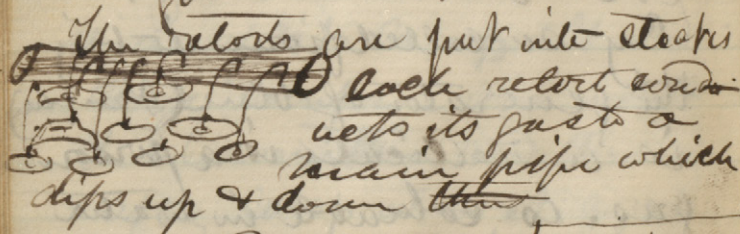 The retorts are put into stacks
each retort condu-
ucts its gas to a
main pipe which
dips up & down thus